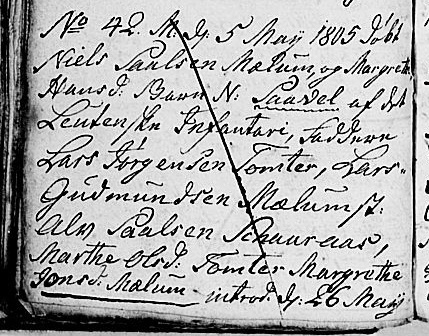 No 42. M. dj. 5 Maÿ 1805 Døbt
Niels Paulsen Mælum, og Margrethe
Hansd: Barn N: Paavel af det
Leutenske Infantari, Faddere
Lars Jørgensen Tomter, Lars
Gudmundsen Mælum st:
Alv Paalsen Schaaraas,
Marthe Olsd: Tomter Margrethe
Jonsd: Mælum introd: dj. 26 Maÿ